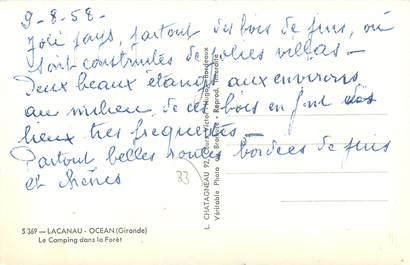 9-8-58-
Joli pays, partout des bois de pins, où
sont construites de jolies villas-
Deux beaux étangs aux environs
au milieu de ces bois en font des
lieux très fréquentés-
Partout belles routes bordées de pins
et chênes
33
S 369 — LACANAU - OCEAN (Gironde)
Le Camping dans la Forêt
L. CHATAGNEAU 92, Cours Victor Hugo - Bordeaux
Véritable Photo au Bromure - Reprod. Interdite